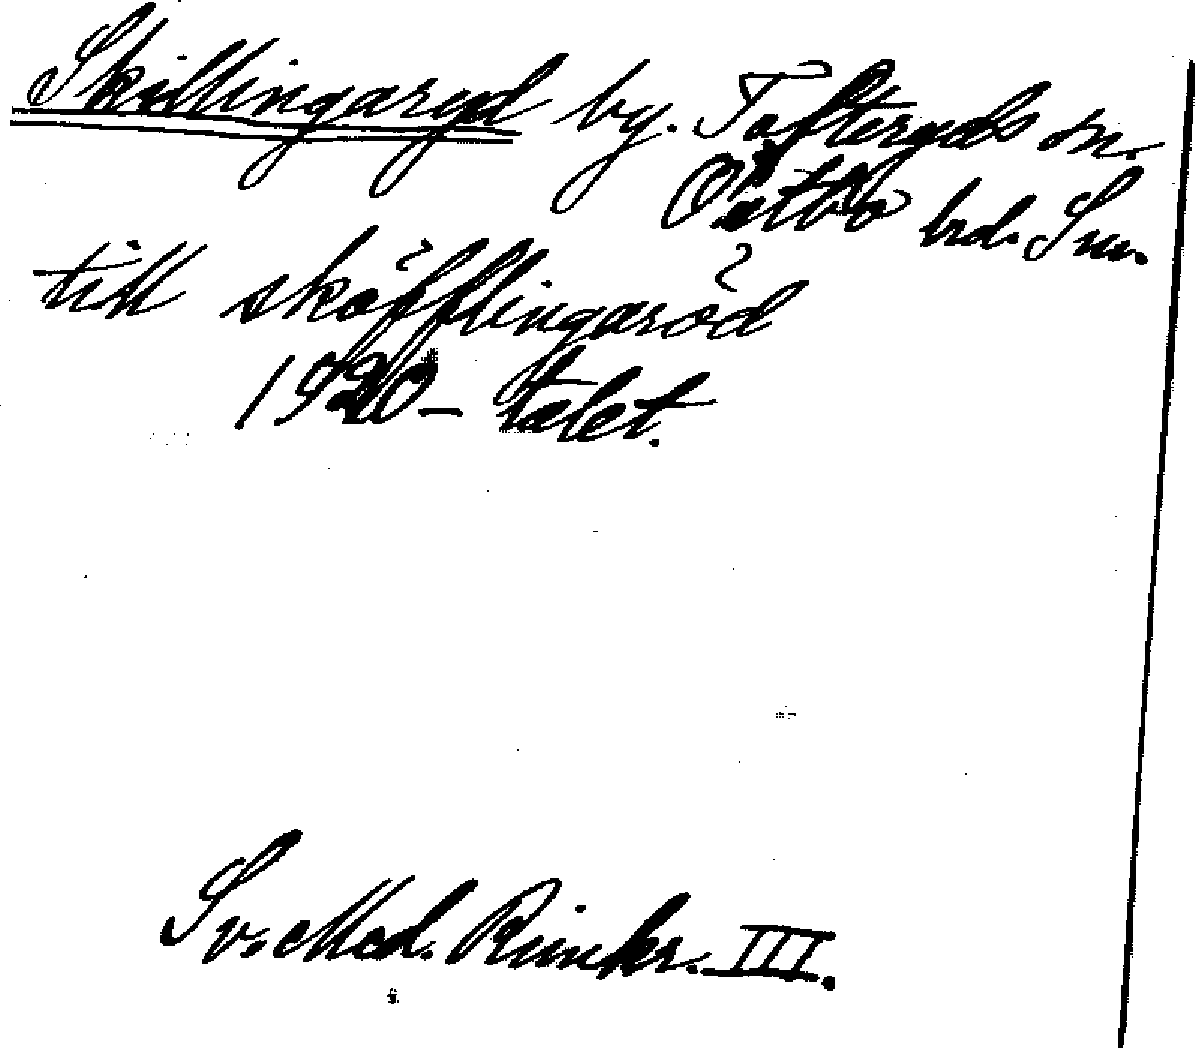 Skillingaryd by. Tofteryds sn.
Östbo hd. Sm.
till sköfflingaröd
1920-talet.
Sv. Med. Runkr. III.